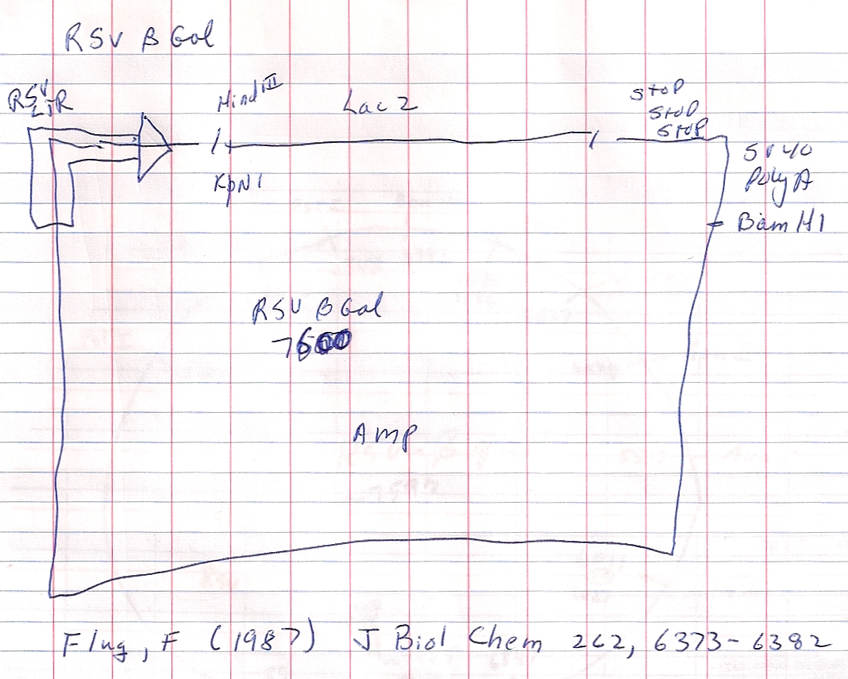 RSV B Gal
RSV
LTR
Hind III
Lac Z
STOP
STOP
STOP
KpN 1
SV 40
Poly A
Bam H1
RSV B Gal
7600
Amp
Flug, F (1987) J Biol Chem 262, 6373-6382